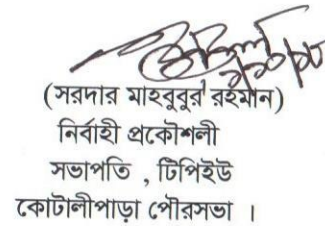 (সরদার মাহবুবুর রহমান)
নির্বাহী প্রকৌশলী
সভাপতি , টিপিইউ
কোটালীপাড়া পৌরসভা ।